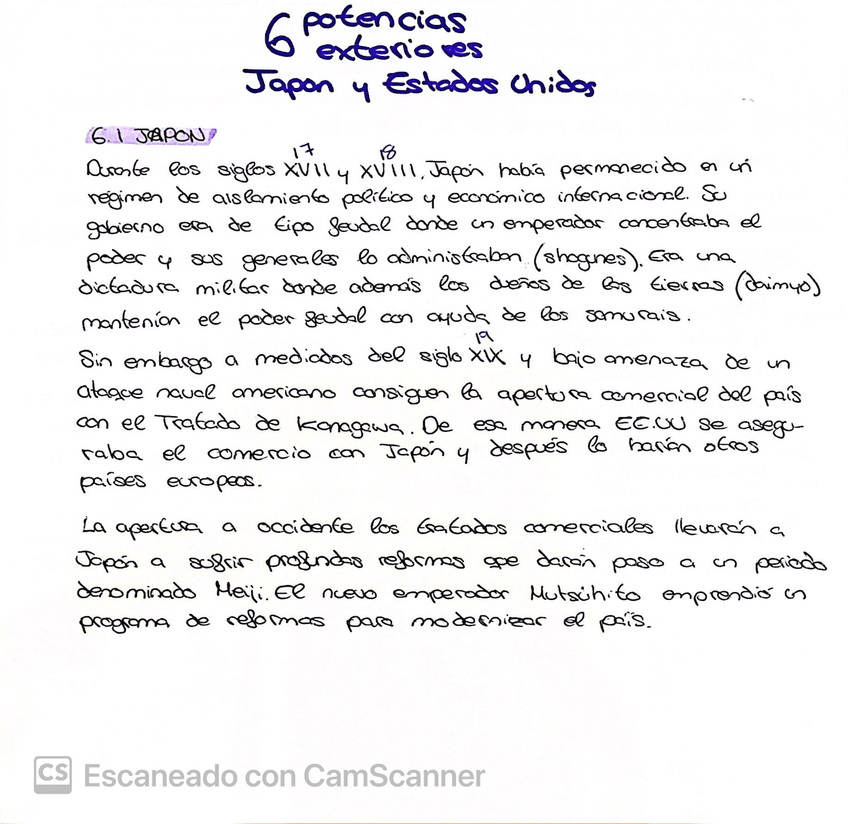 6 potencias
exteriores
Japon y Estados Unidos
6.1 JAPON
17 18
Durante los siglos XVII y XVIII, Japón había permanecido en un
régimen de aislamiento político y económico internacional. Su
gobierno era de tipo feudal donde un emperador concentraba el
poder y sus generales lo administraban (shogunes). Era una
dictadura militar donde además los dueños de las tierras (daimyo)
mantenían el poder feudal con ayuda de los samurais.
19
Sin embargo a mediados del siglo XIX y bajo amenaza de un
ataque naval americano consiguen la apertura comercial del país
con el Tratado de Kanagawa. De esa manera EE.UU se asegu-
raba el comercio con Japón y después lo harán otros
países europeos.
La apertura a occidente los tratados comerciales llevarán a
Japón a sufrir profundas reformas que darán paso a un periodo
denominado Meiji. El nuevo emperador Mutsuhito emprendió un
programa de reformas para modernizar el país.
CS Escaneado con CamScanner